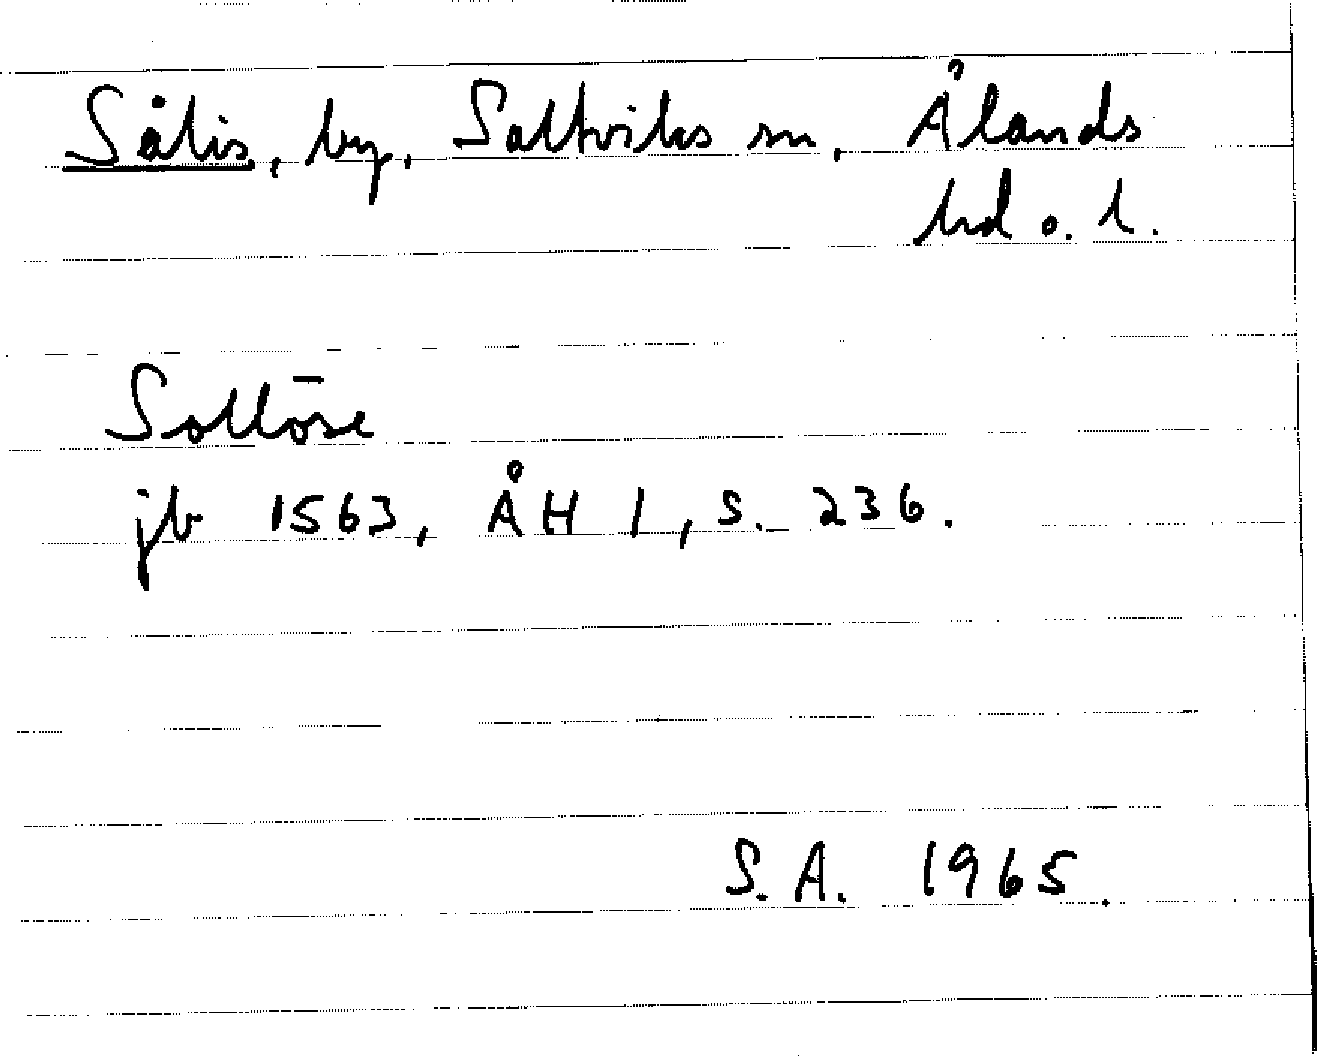 Sålis, by, Saltviks sn, Ålands
hd o. l.
Sollöse
jb 1563, ÅH I, s. 236.
S.A. 1965.